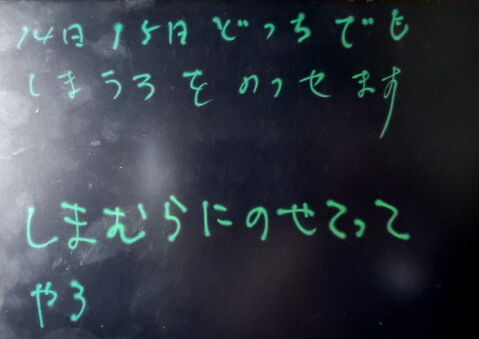 14日 15日 どっちでも
しまうろをのっせます
しまむらにのせてって
やる